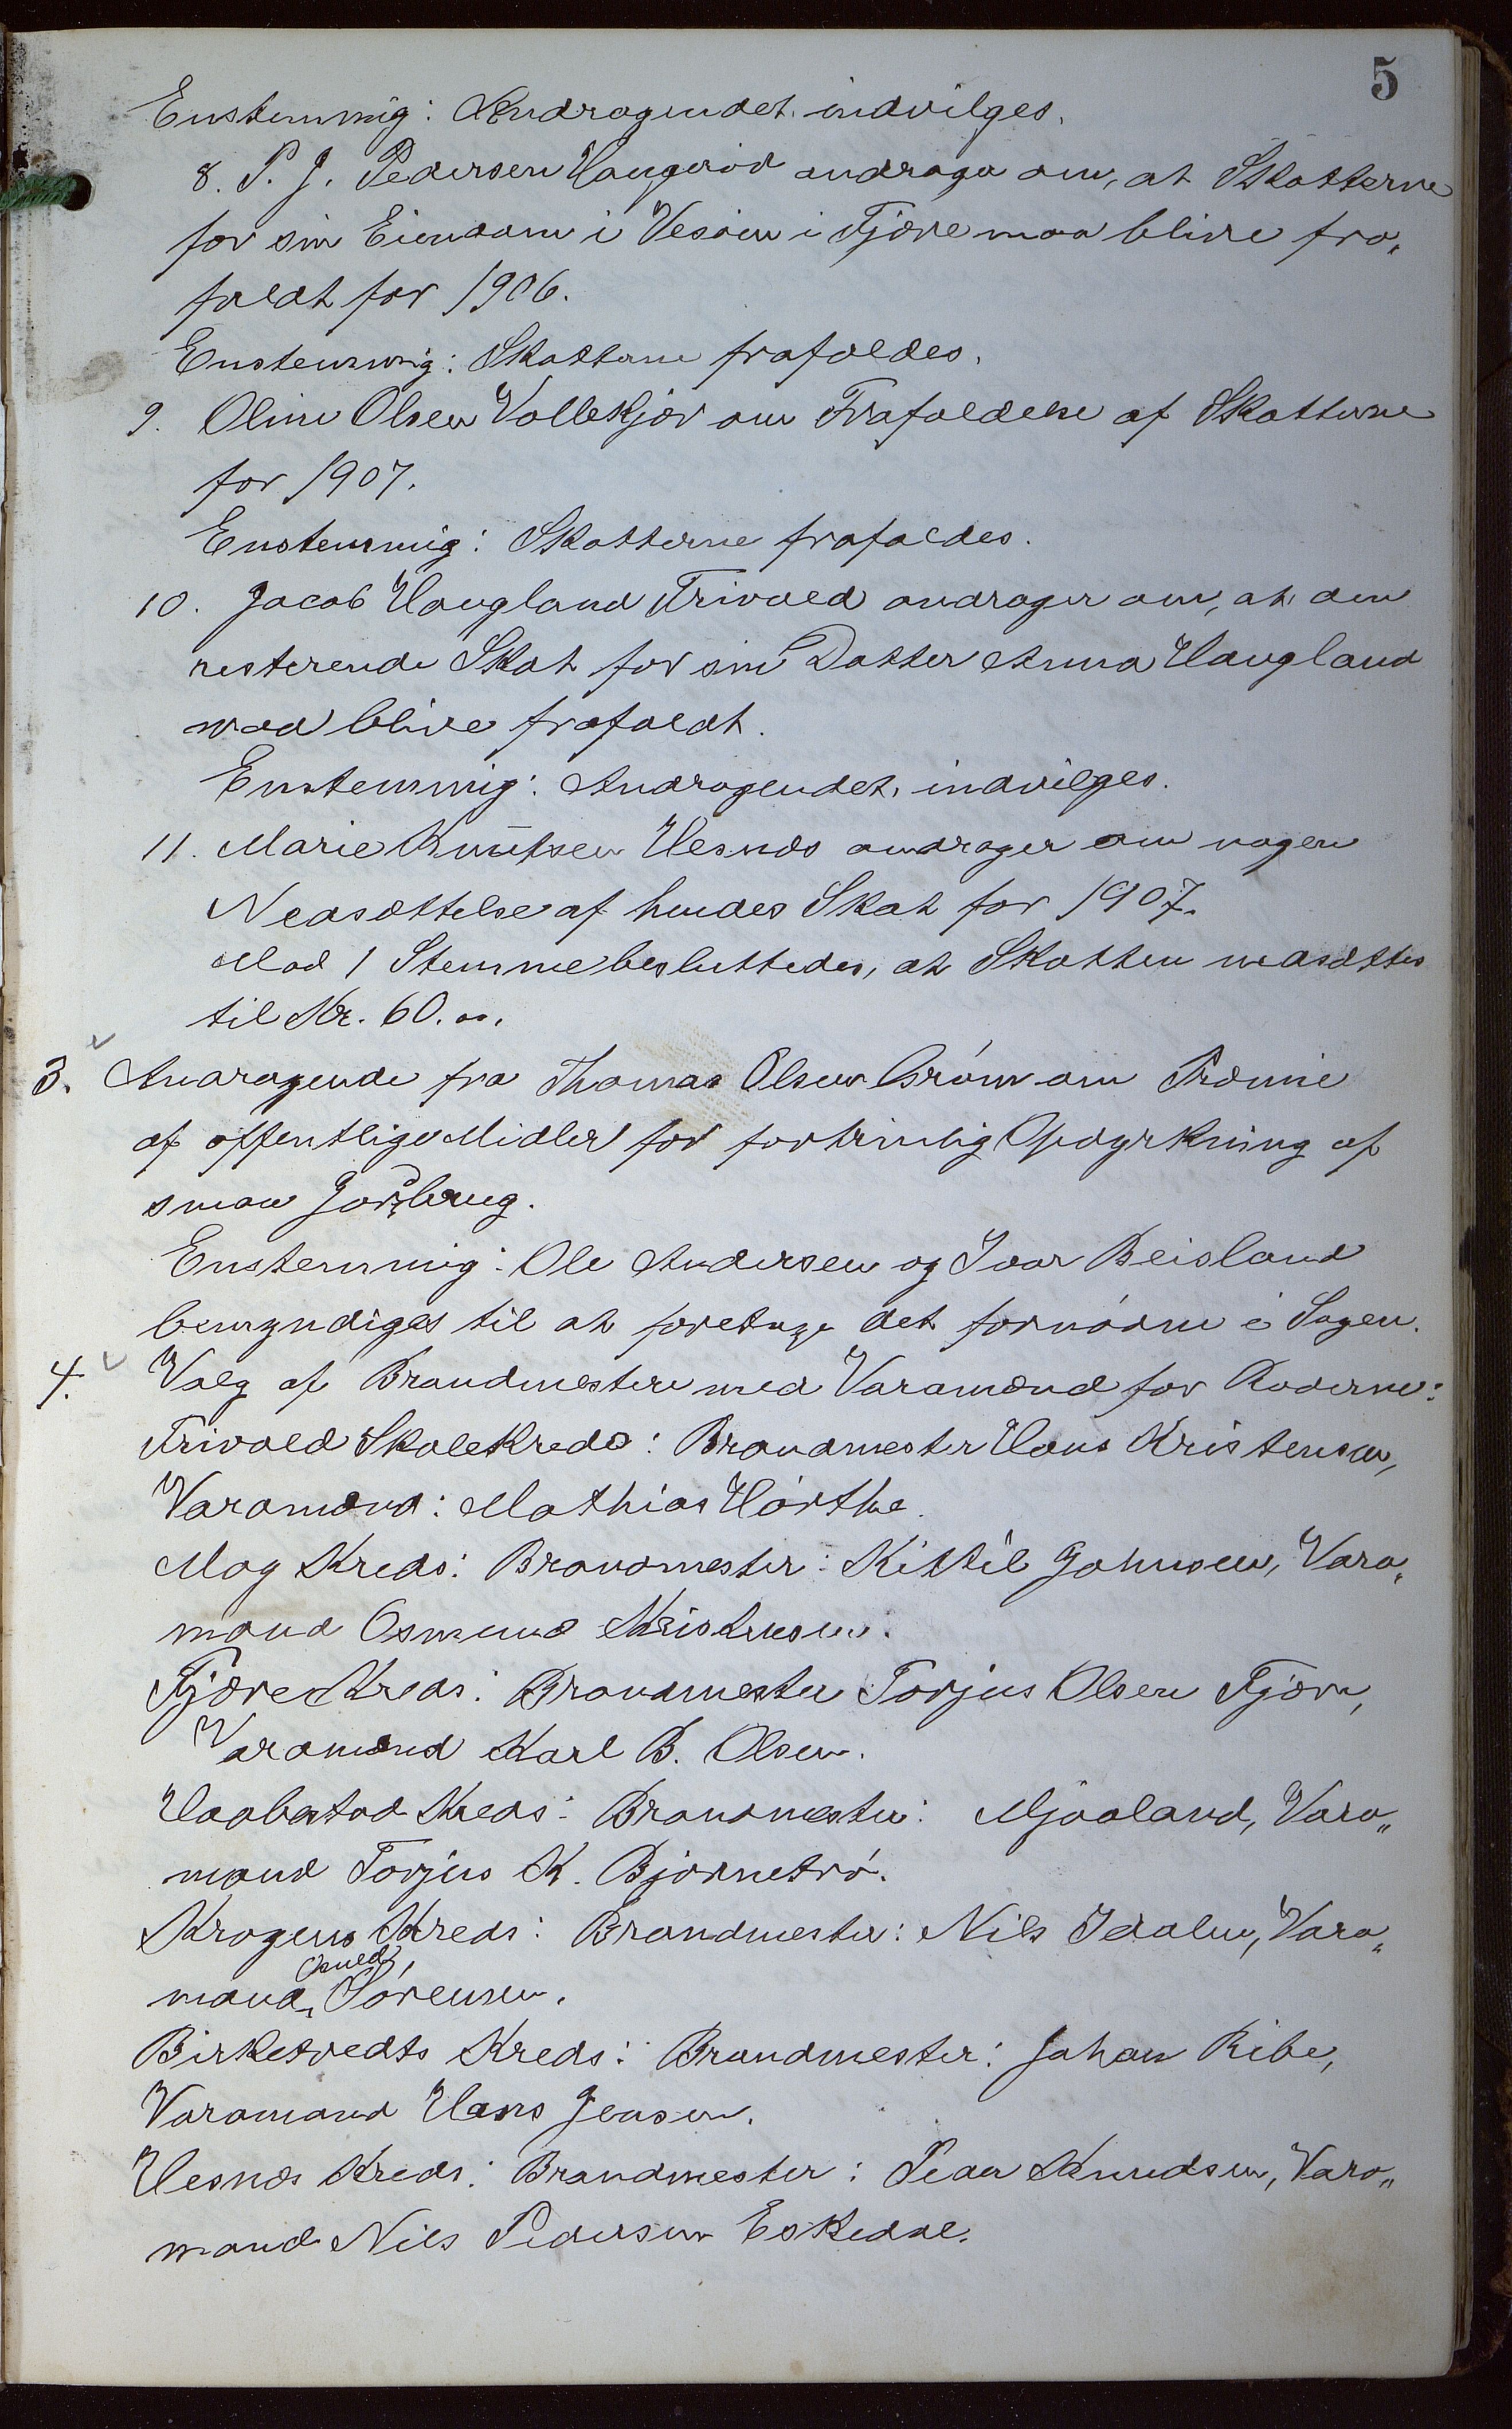 5
Enstemmig: Andragendet indvilges.
8. P. J. Pedersen Haugerød andrager om, at Skatterne
for sin Eiendom i Vesøien i Fjære maa blive fra„
faldt for 1906.
Enstemmig: Skatterne frafaldes.
9. Oline Olsen Vollekjær om Frafaldelse af Skatterne
for 1907.
Enstemmig: Skatterne frafaldes.
10. Jacob Haugland Trivold andrager om, at den
resterende Skat for sin Datter Anna Haugland
maa blive frafaldt.
Enstemmig: Andragendet indvilges.
11. Marie Knutsen Hesnes andrager om nogen
Nedsættelse af hendes Skat for 1907.
Mod 1 Stemme besluttedes, at Skatten nedsættes
til Kr. 60.00.
3. Andragende fra Thomas Olsen Grøm om Præmie
af offentlige Midler for fortrinlig Opdyrkning af
smaa Jordbrug.
Enstemmig: Ole Andersen og Ivar Beisland
bemyndiges til at foretage det fornødne i Sagen.
4. Valg af Brandmestere med Varamænd for Roderne:
Trivold Skolekreds: Brandmester Hans Kristensen,
Varamand: Mathias Hørthe.
Mog Kreds: Brandmester: Kittil Johnsen, Vara„
mand Osmund Kristensen.
Fjære Kreds: Brandmester Torjus Olsen Fjære,
Varamand Karl B. Olsen.
Haabestad Kreds: Brandmester: Mjaaland, Vara„
mand Torjus K. Bjørnetrø.
Krogens Kreds: Brandmester: Nils Idalen, Vara„
mand Osuld Sørensen.
Birketvedts Kreds: Brandmester: Johan Ribe,
Varamand Hans Jensen.
Hesnes Kreds: Brandmester: Peder Knudsen, Vara„
mand Nils Pedersen Eskedal.